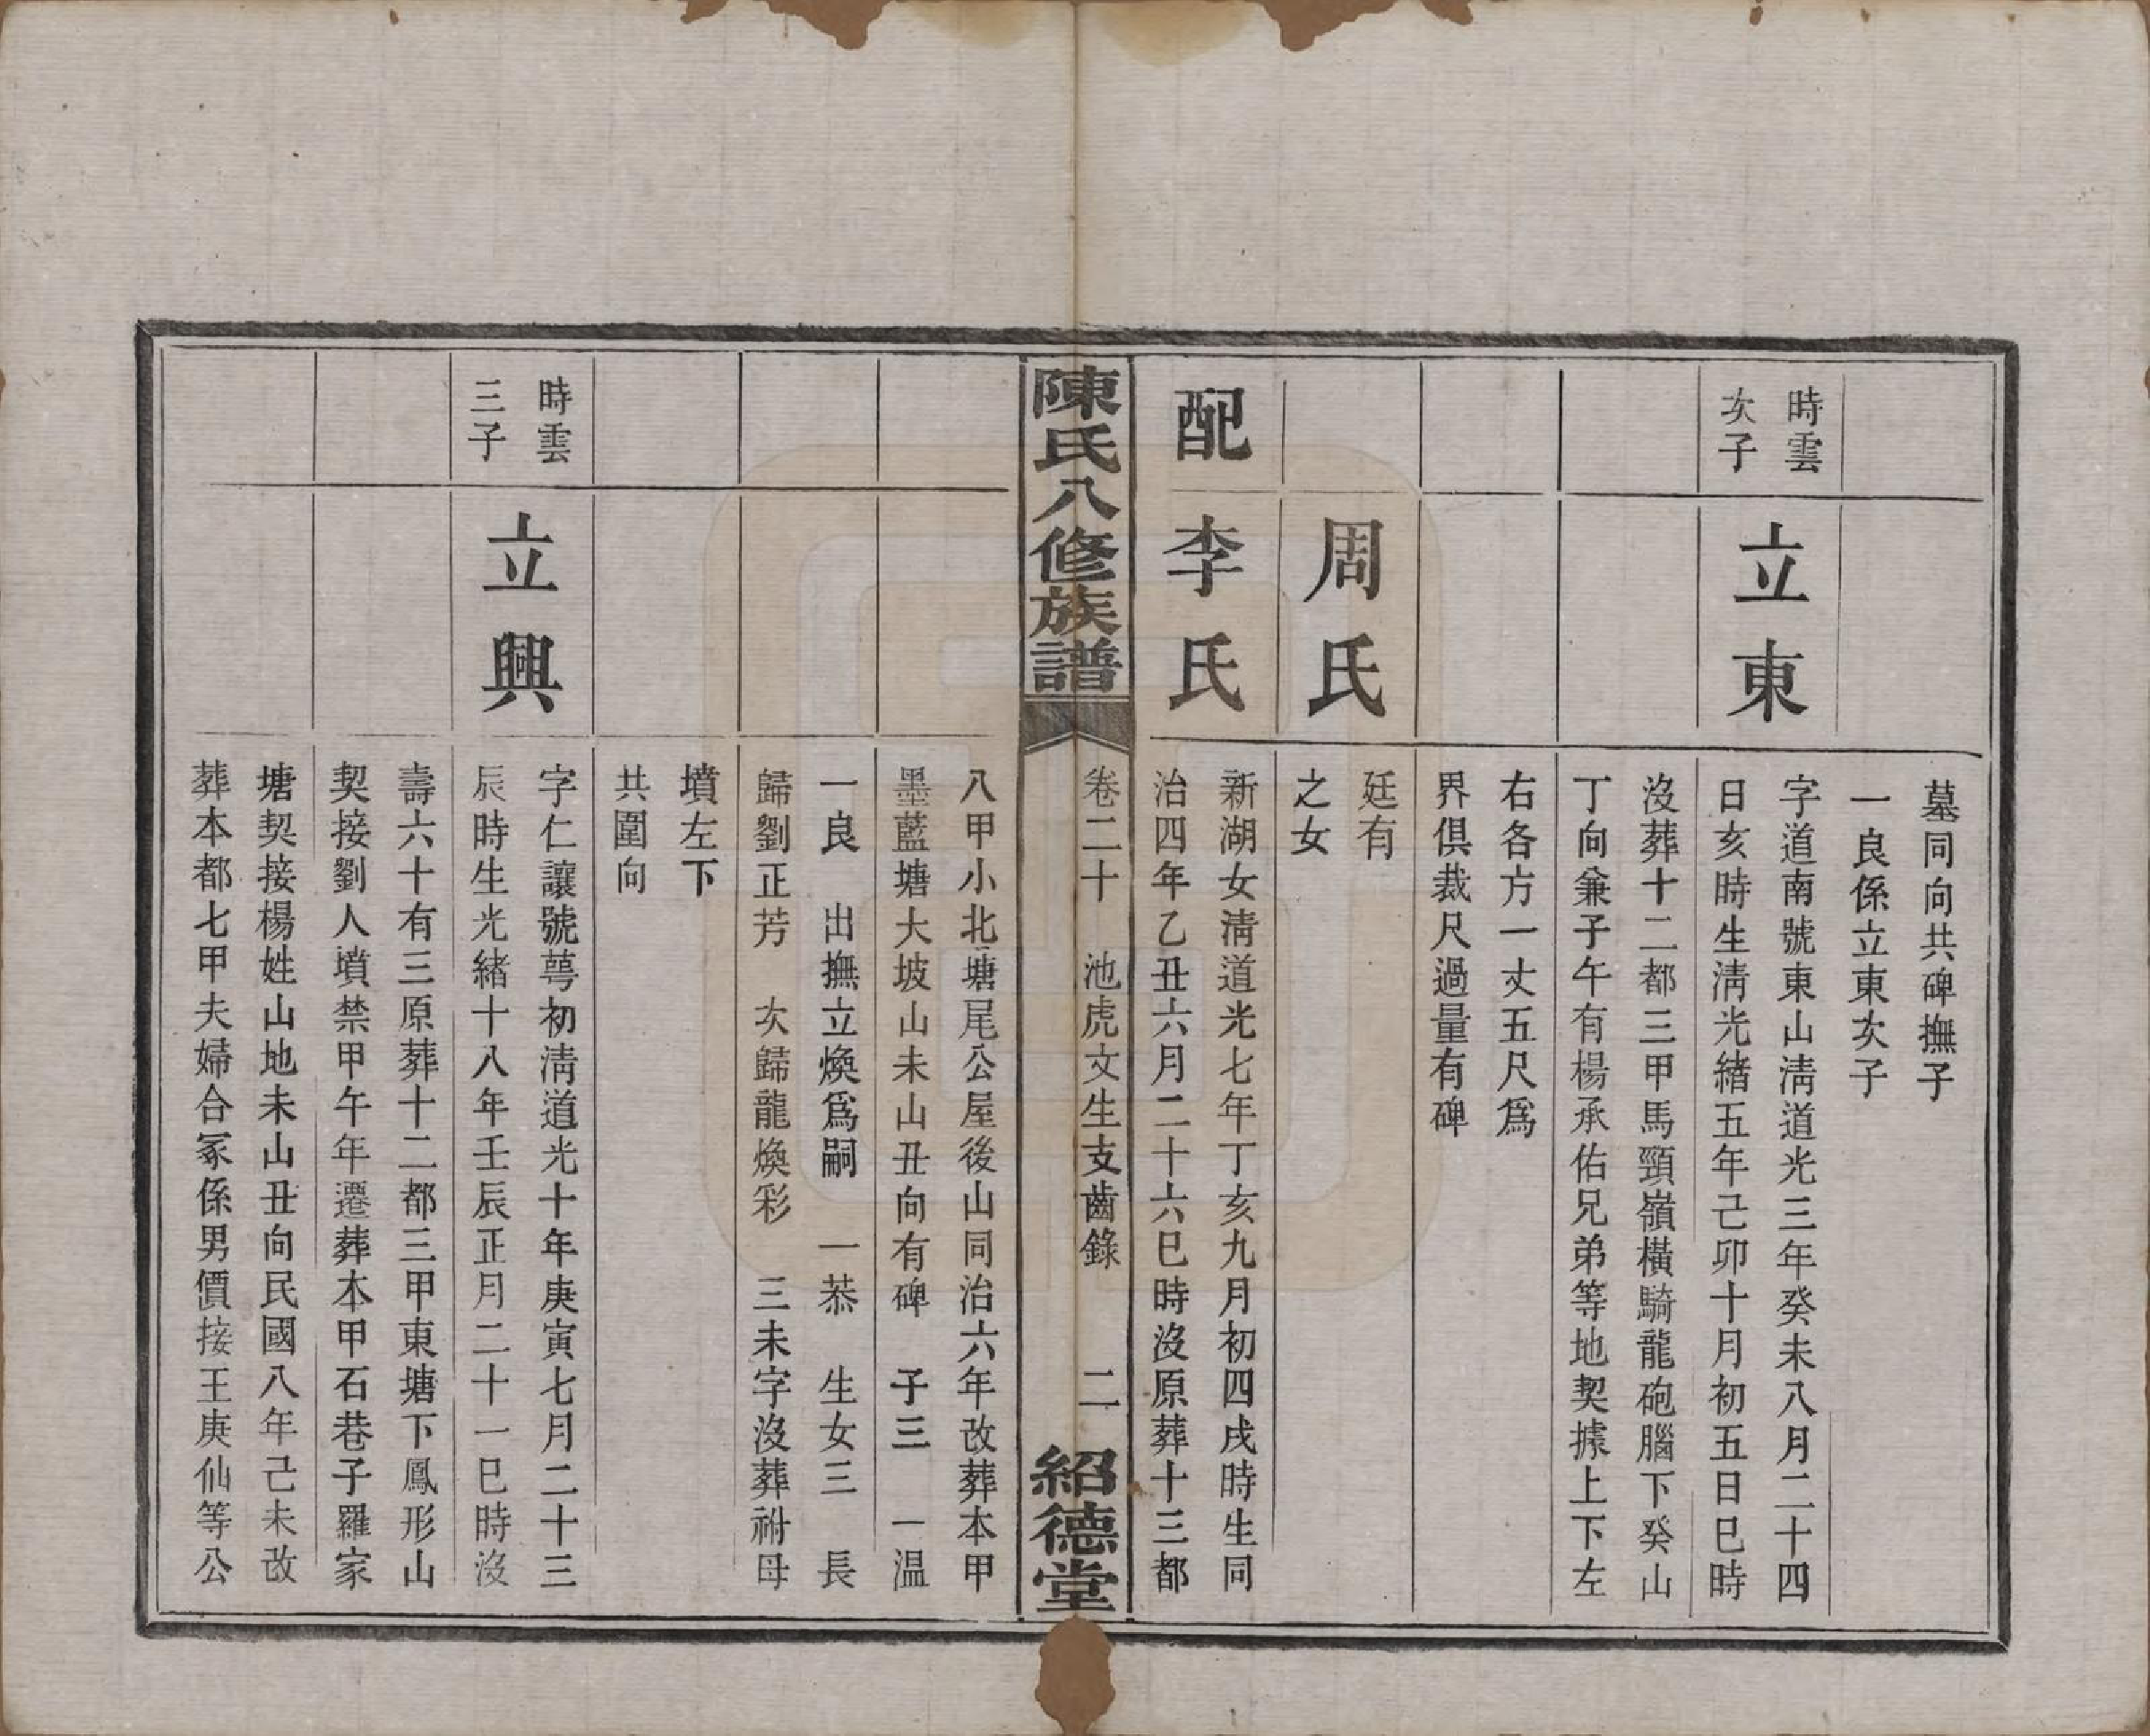 墓同向共碑撫子
一良係立東次子
時雲
次子
立東
字道南號東山淸道光三年癸未八月二十四
日亥時生淸光緖五年己卯十月初五日巳時
沒葬十二都三甲馬頸嶺橫騎龍砲腦下癸山
丁向兼子午有楊承佑兄弟等地契據上下左
右各方一丈五尺爲
界俱裁尺過量有碑
周氏
廷有
之女
配
李氏
新湖女淸道光七年丁亥九月初四戌時生同
治四年乙丑六月二十六巳時沒原葬十三都
陳氏八修族譜
卷二十 池虎文生支齒錄 二
紹德堂
八甲小北塘尾公屋後山同治六年改葬本甲
墨藍塘大坡山未山丑向有碑 子三 一温
一良 出撫立煥爲嗣 一恭 生女三 長
歸劉正芳 次歸龍煥彩 三未字沒葬祔母
墳左下
共圍向
時雲
三子
立興
字仁讓號萼初淸道光十年庚寅七月二十三
辰時生光緖十八年壬辰正月二十一巳時沒
壽六十有三原葬十二都三甲東塘下鳳形山
契接劉人墳禁甲午年遷葬本甲石巷子羅家
塘契接楊姓山地未山丑向民國八年己未改
葬本都七甲夫婦合冢係男價接王庚仙等公